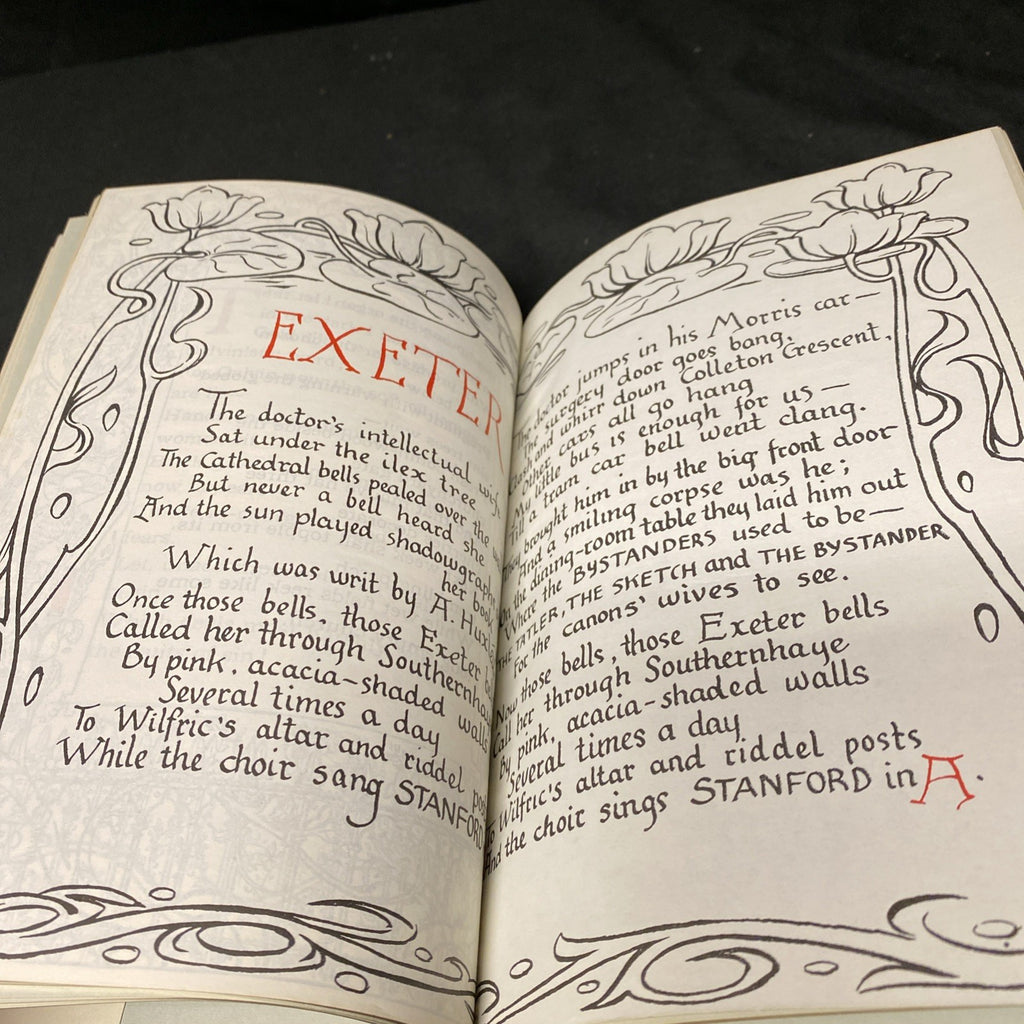 EXETER
The doctor's intellectual
Sat under the ilex tree
The Cathedral bells pealed over the
But never a bell heard she
And the sun played shadowgraphs
her book
Which was writ by A.
Once those bells, those Exeter
Called her through
By pink, acacia-shaded walls
Several times a day
To Wilfric's altar and riddel
While the choir sang STANFORD
The doctor jumps in his Morris car—
The surgery door goes bang,
and whirr down Colleton Crescent,
Other cars all go hang
My little bus is enough for us —
Till a tram car bell went clang.
They brought him in by the big front door
And a smiling corpse was he;
On the dining-room table they laid him out
Where the BYSTANDERS used to be—
THE TATLER, THE SKETCH and THE BYSTANDER
For the canons' wives to see.
Now those bells, those Exeter bells
Call her through Southernhaye
By pink, acacia-shaded walls
Several times a day
To Wilfric's altar and riddel posts
And the choir sings STANFORD in A.